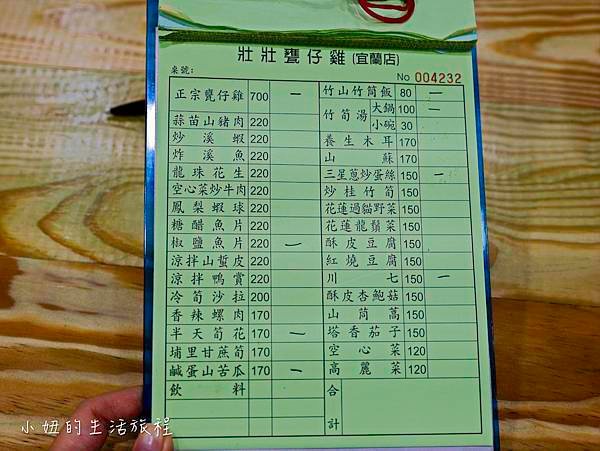 壯壯甕仔雞(宜蘭店)
桌號:
No 004232
正宗甕仔雞 700 一
蒜苗山豬肉 220
炒溪蝦 220
炸溪魚 220
龍珠花生 220
空心菜炒牛肉 220
鳳梨蝦球 220
糖醋魚片 220
椒鹽魚片 220 一
涼拌山蜇皮 220
涼拌鴨賞 220
冷筍沙拉 200
香辣螺肉 170
半天筍花 170 一
埔里甘蔗筍 170
鹹蛋山苦瓜 170 一
飲料
竹山竹筒飯 80 一
竹筍湯 大鍋 100 一
小碗 30
養生木耳 170
山蘇 170
三星蔥炒蛋絲 150 一
炒桂竹筍 150
花蓮過貓野菜 150
花蓮龍鬚菜 150
酥皮豆腐 150
紅燒豆腐 150
川七 150 一
酥皮杏鮑菇 150
山茼蒿 150
塔香茄子 150
空心菜 120
高麗菜 120
合計
小妞的生活旅程